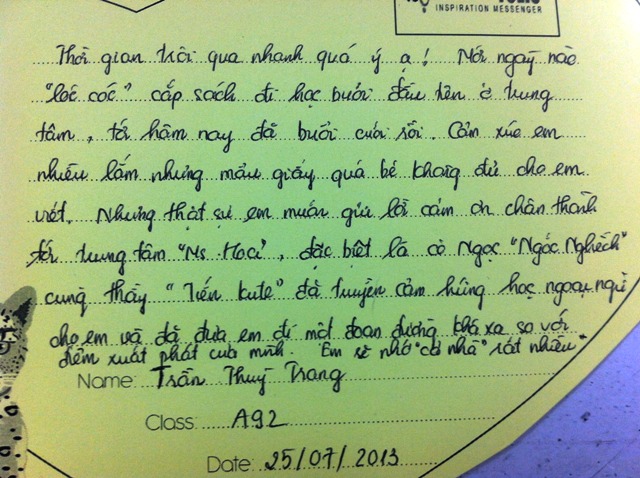 INSPIRATION MESSENGER
Thời gian trôi qua nhanh quá ý ạ! Mới ngày nào
"lóc cóc" cắp sách đi học buổi đầu tiên ở trung
tâm, tới hôm nay đã buổi cuối rồi. Cảm xúc em
nhiều lắm nhưng mẩu giấy quá bé không đủ cho em
viết. Nhưng thật sự em muốn gửi lời cảm ơn chân thành
tới trung tâm "Ms Hoa", đặc biệt là cô Ngọc "Ngốc Nghếch"
cùng thầy "Tiến kute" đã truyền cảm hứng học ngoại ngữ
cho em và đã đưa em đi một đoạn đường khá xa so với
điểm xuất phát của mình. Em sẽ nhớ "cả nhà" rất nhiều.
Name: Trần Thuỳ Trang
Class: A92
Date: 25/07/2013